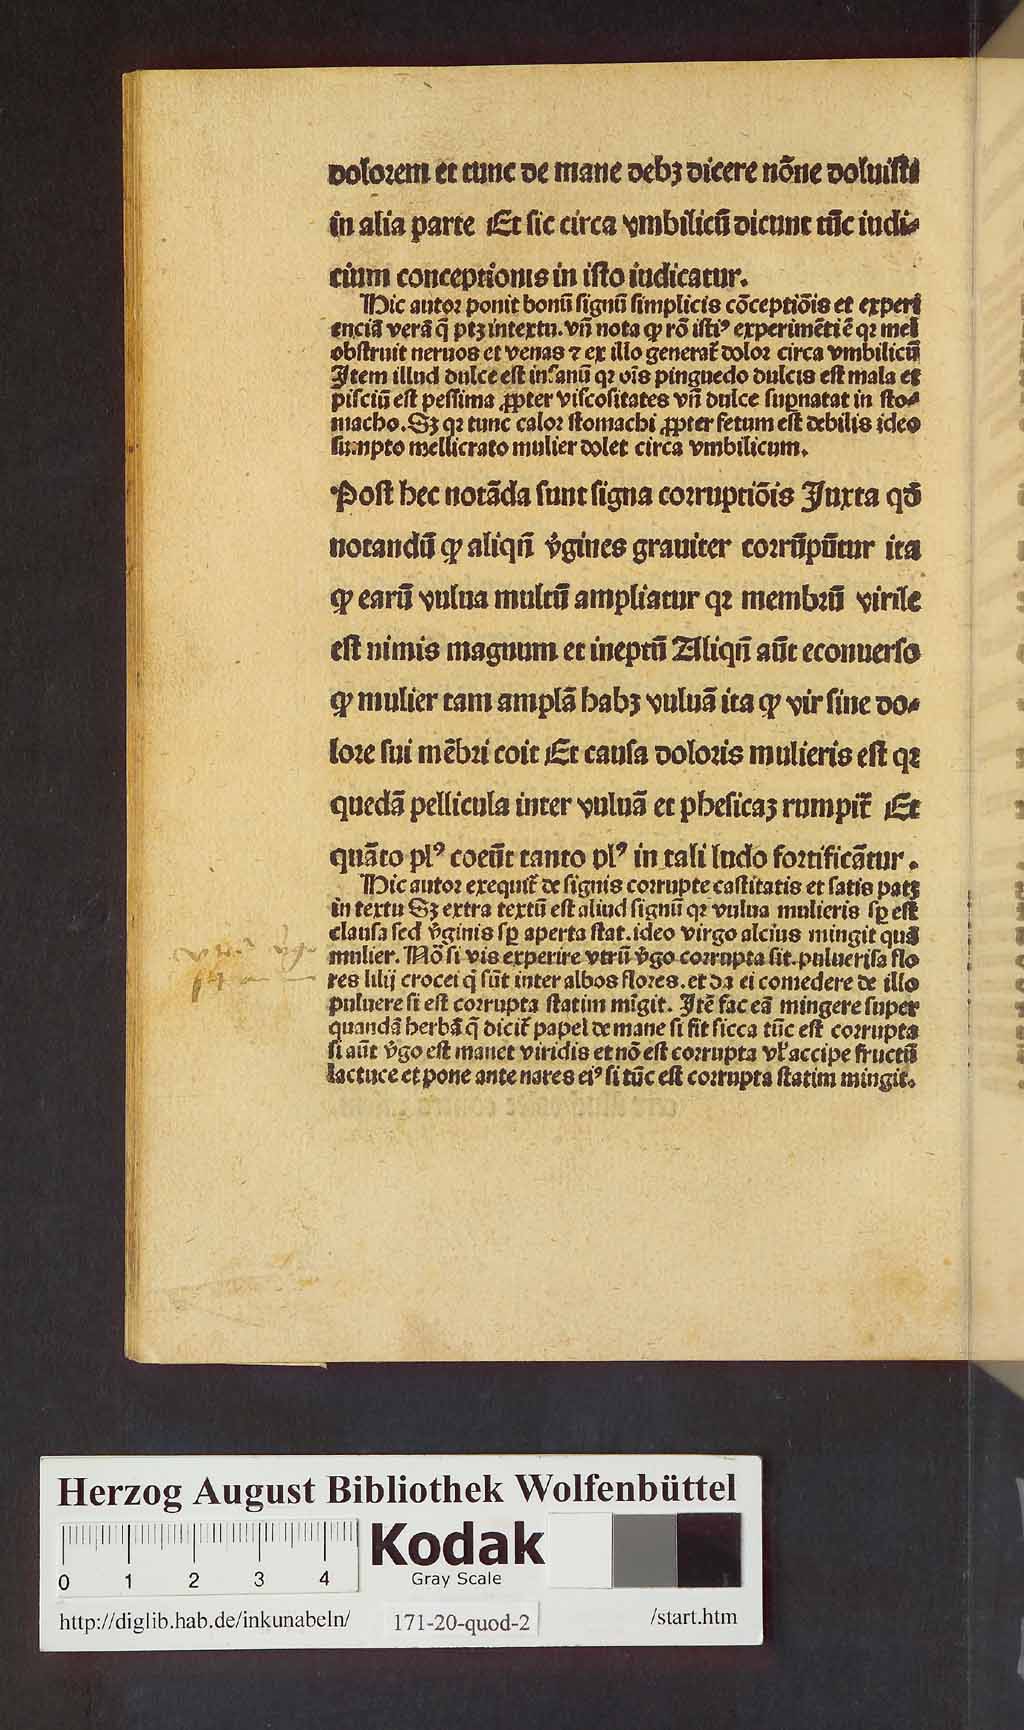 dolorem et tunc de mane debꝫ dicere nōne doluisti
in alia parte Et sic circa vmbilicū dicunt tūc iudi⸗
cium conceptionis in isto iudicatur.
Hic autor ponit bonū signū simplicis cōceptiōis et experi
enciā verā q̄ ptꝫ in textu. vn̄ nota ꝙ rō istiꝰ experimēti ē qꝛ mel
obstruit neruos et venas ⁊ ex illo generat᷑ dolor circa vmbilicū
Item illud dulce est insanū qꝛ oīs pinguedo dulcis est mala et
pisciū est pessima ꝓpter viscositates vn̄ dulce supnatat in sto⸗
macho. Sꝫ qꝛ tunc calor stomachi ꝓpter fetum est debilis ideo
sumpto mellicrato mulier dolet circa vmbilicum.
Post hec notāda sunt signa corruptiōis Juxta qd̄
notandū ꝙ aliqn̄ v̄gines grauiter corrūpūtur ita
ꝙ earū vulua multū ampliatur qꝛ membrū virile
est nimis magnum et ineptū Aliqn̄ aūt econuerso
ꝙ mulier tam amplā habꝫ vuluā ita ꝙ vir sine do⸗
lore sui mēbri coit Et causa doloris mulieris est qꝛ
quedā pellicula inter vuluā et phesicaꝫ rumpit᷑ Et
quāto plꝰ coeūt tanto plꝰ in tali ludo fortificātur.
Hic autor exequit᷑ de signis corrupte castitatis et satis patꝫ
in textu Sꝫ extra textū est aliud signū qꝛ vulua mulieris sp̄ est
clausa sed v̄ginis sp̄ aperta stat. ideo virgo alcius mingit quā
mulier. Nō si vis experire vtrū v̄go corrupta sit. puluerisa flo
res lilij crocei q̄ sūt inter albos flores. et da ei comedere de illo
puluere si est corrupta statim mīgit. Itē fac eā mingere super
quandā herbā q̄ dicit᷑ papel de mane si fit sicca tūc est corrupta
si aūt v̄go est manet viridis et nō est corrupta vl᷑ accipe fructū
lactuce et pone ante nares eiꝰ si tūc est corrupta statim mingit.
Herzog August Bibliothek Wolfenbüttel
0 1 2 3 4
Kodak
Gray Scale
http://diglib.hab.de/inkunabeln/ 171-20-quod-2 /start.htm